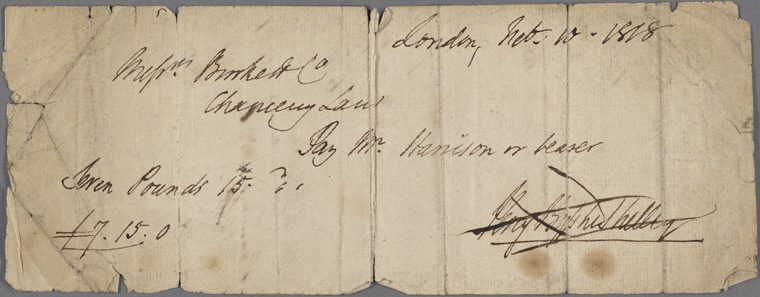 London, Feb. 10 - 1818
Messrs Brookes & Co
Chancery Lane
Pay Mr. Harrison or bearer
Seven Pounds 15.
£7.15.0
Percy Bysshe Shelley